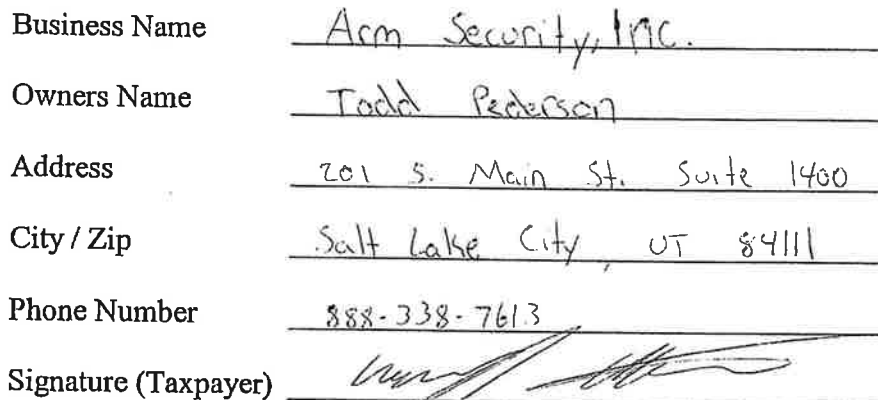 Business Name Arm Security, Inc.
Owners Name Todd Pederson
Address 201 S. Main St. Suite 1400
City / Zip Salt Lake City, UT 84111
Phone Number 888-338-7613
Signature (Taxpayer)